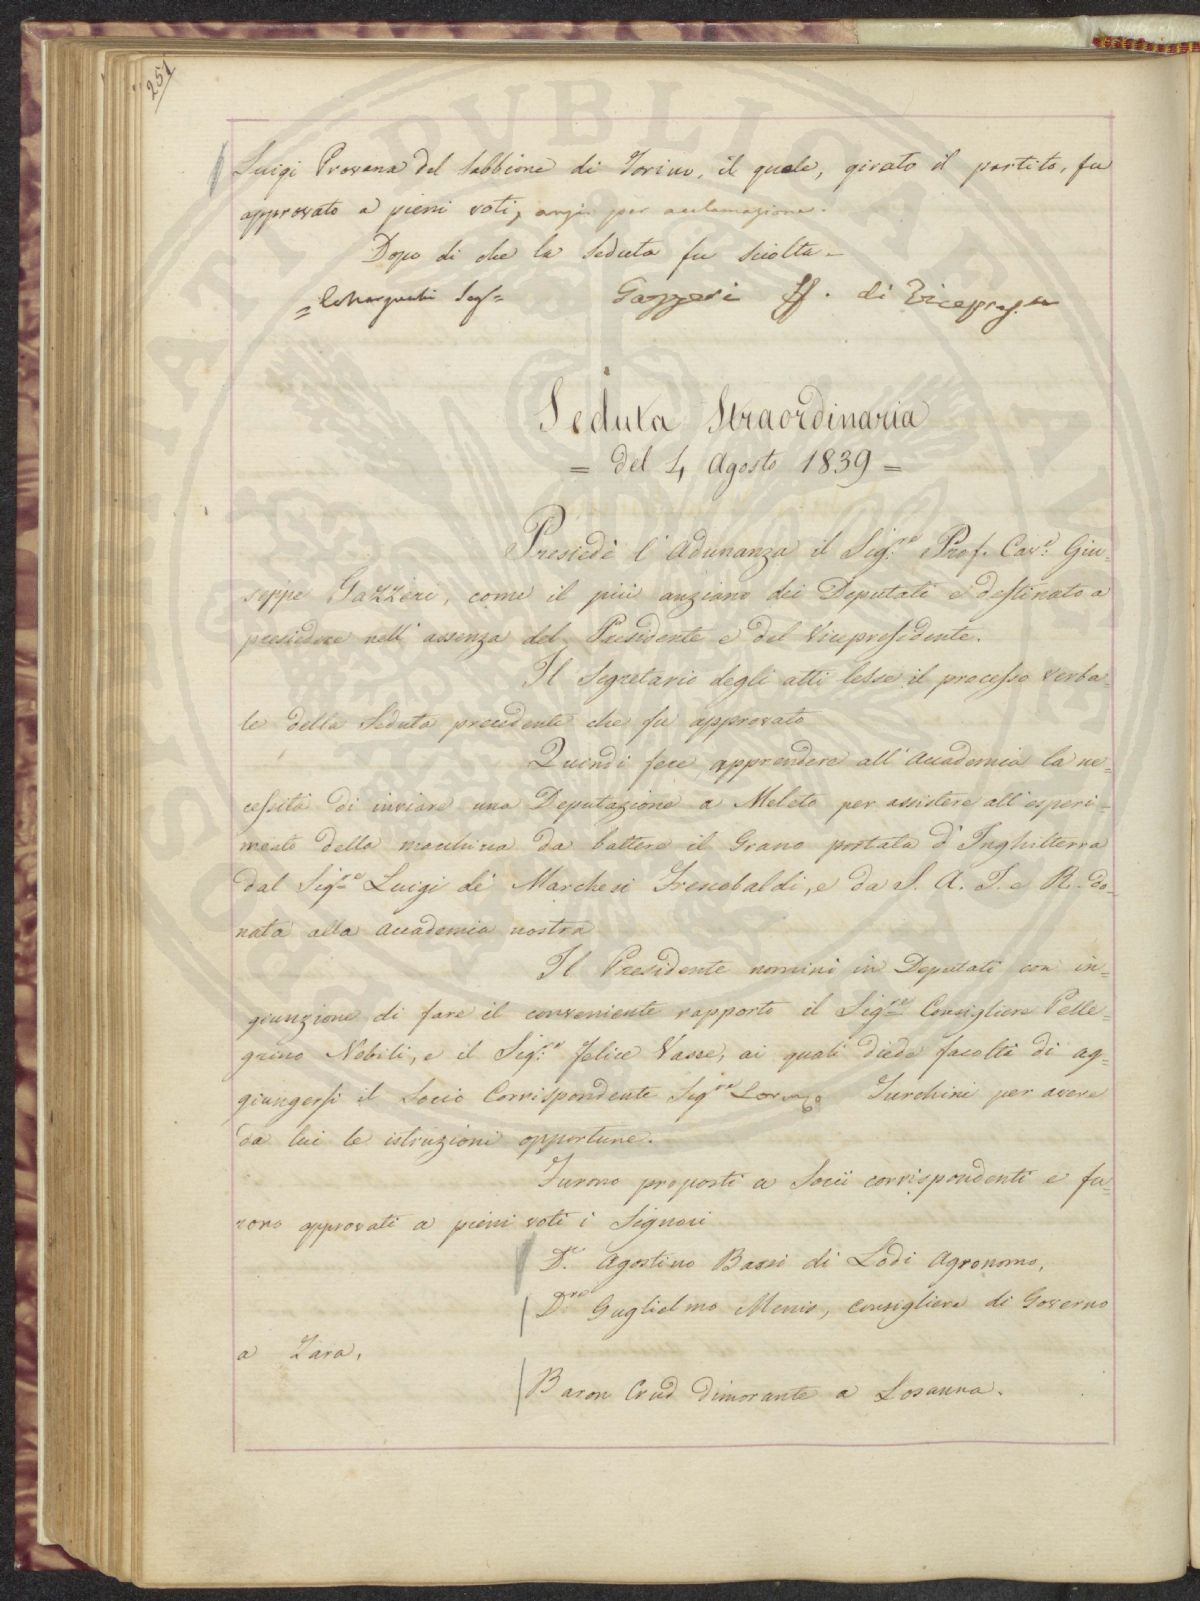 251
Luigi Provana del Sabbione di Torino, il quale, girato il partito, fu
approvato a pieni voti, anzi per acclamazione.
Dopo di che la Seduta fu sciolta.
Gazzeri ff. di Vicepres.te
Seduta Straordinaria
= del 4 Agosto 1839 =
Presiedè l'Adunanza il Sig.re Prof. Cav.e Giu-
seppe Gazzeri, come il più anziano dei Deputati e destinato a
presiedere nell'assenza del Presidente e del Vicepresidente.
Il Segretario degli atti lesse il processo verba-
le della Seduta precedente che fu approvato
Quindi fece apprendere all'Accademia la ne-
cessità di inviare una Deputazione a Meleto per assistere all'esperi-
mento della macchina da battere il Grano portata d'Inghilterra
dal Sig.re Luigi de' Marchesi Frescobaldi, e da S. A. I. e R. do-
nata alla Accademia nostra
Il Presidente nominò in Deputati con in-
giunzione di fare il conveniente rapporto il Sig.re Consigliere Pelle-
grino Nobili, e il Sig.r Felice Vasse, ai quali diede facoltà di ag-
giungersi il Socio Corrispondente Sig.re Lorenzo Turchini per avere
da lui le istruzioni opportune.
Furono proposti a Socii corrispondenti e fu-
rono approvati a pieni voti i Signori
D.r Agostino Bassi di Lodi Agronomo,
D.re Guglielmo Menis, Consigliere di Governo
a Zara,
Baron Crud dimorante a Losanna.